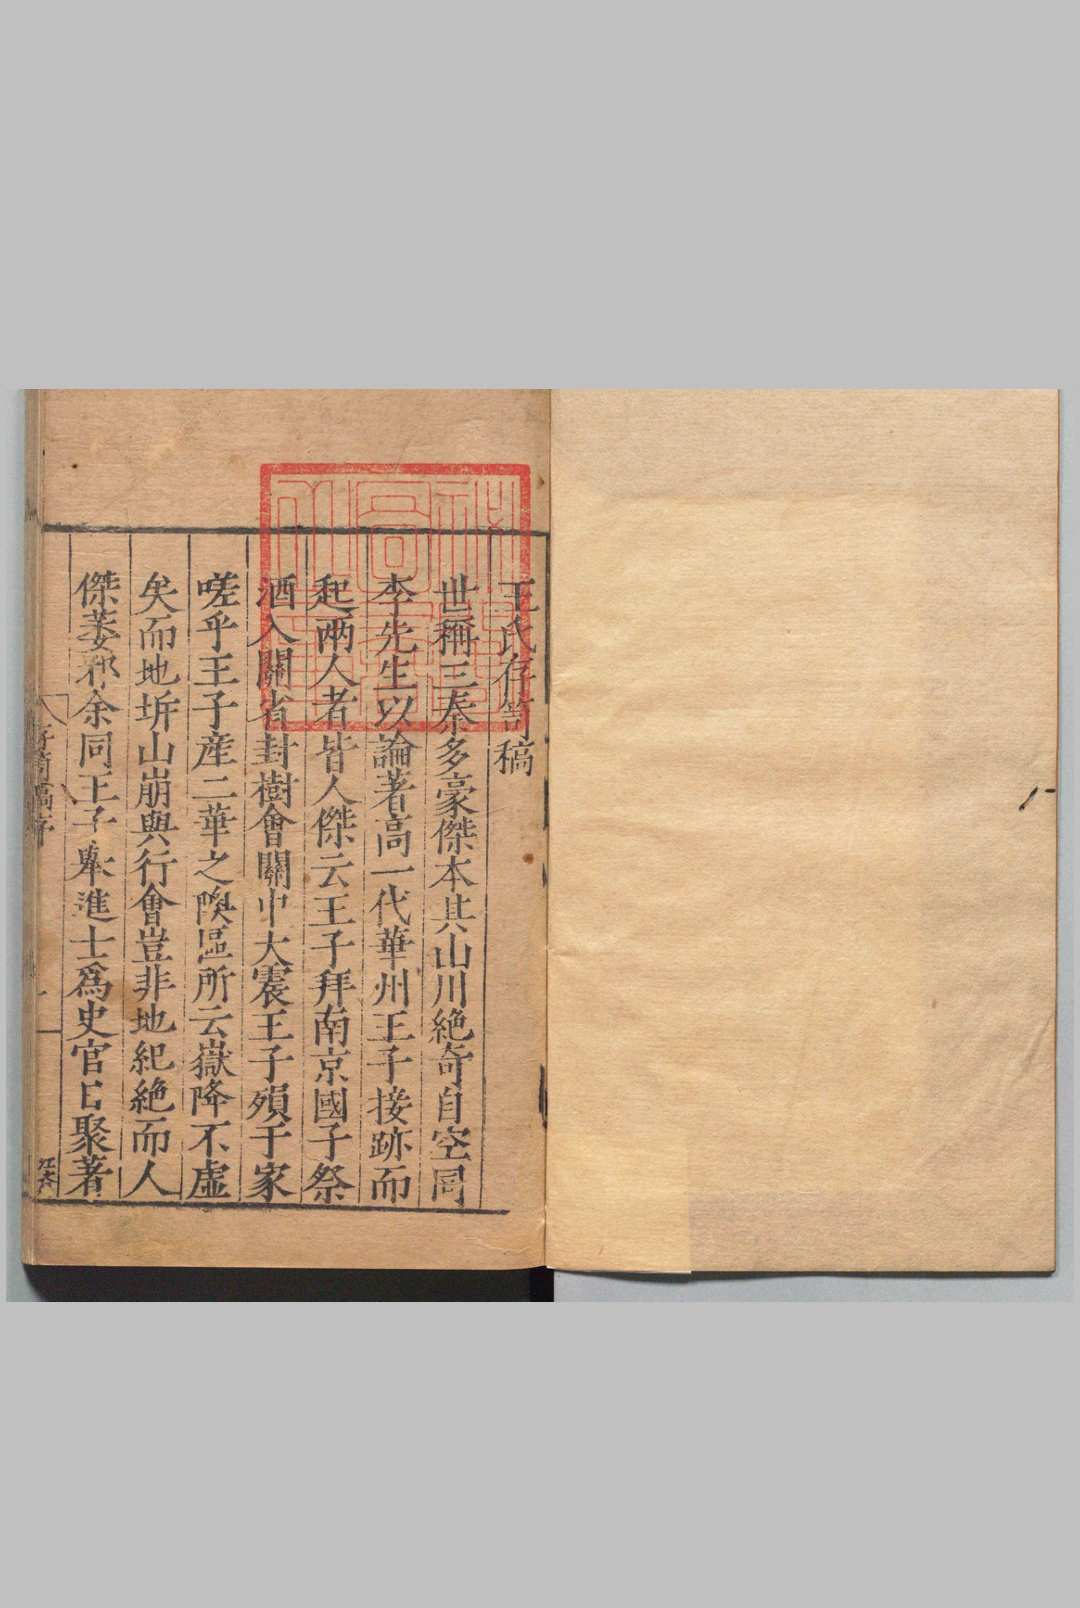 王氏存笥稿
世稱三秦多豪傑本其山川絶奇自空同
李先生以論著高一代華州王子接跡而
起兩人者皆人傑云王子拜南京國子祭
酒入關省封樹會關中大震王子殞于家
嗟乎王子産二華之隩區所云嶽降不虛
矣而地坼山崩與行會豈非地紀絶而人
傑萎邪余同王子舉進士爲史官日聚著
存笥稿序
一